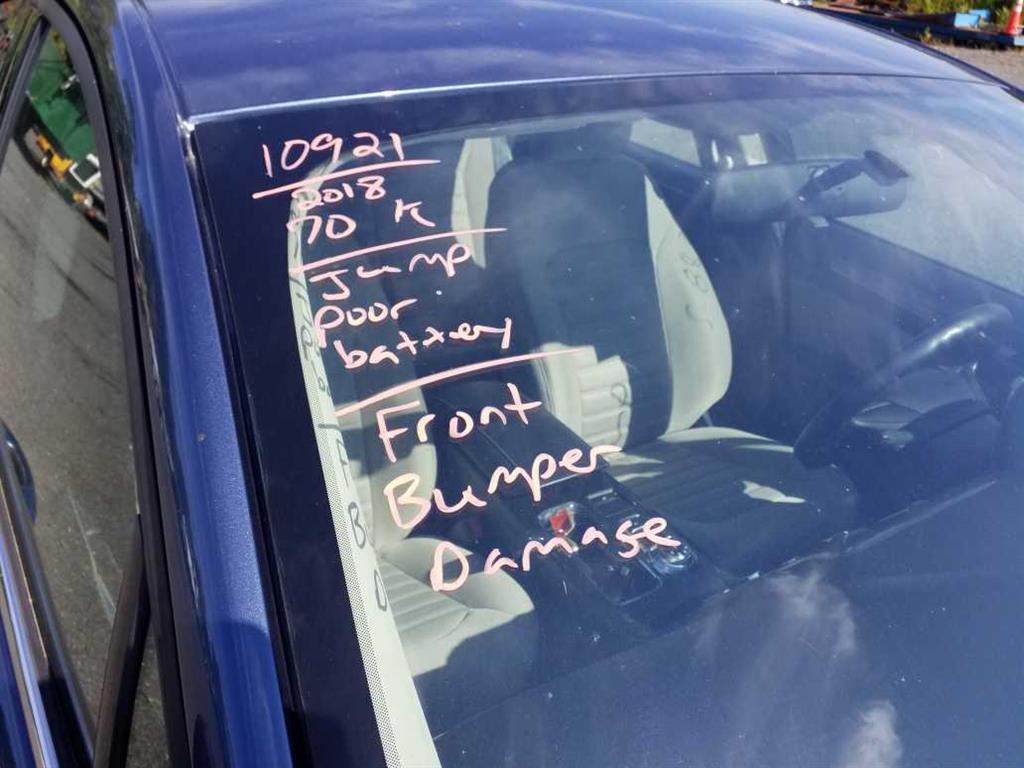 10921
2018
70 K
Jump
poor
battery
Front
Bumper
Damage